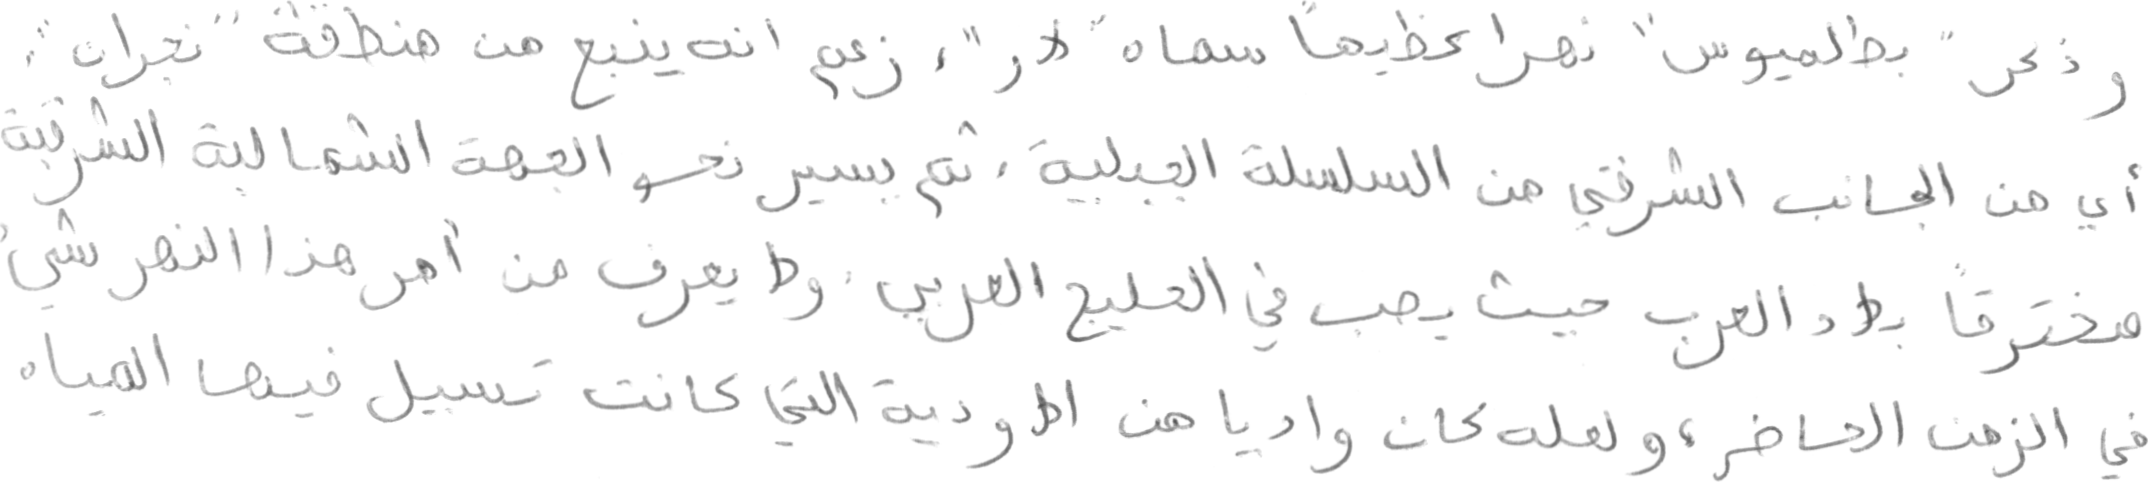 وذكر "بطلميوس" نهرا عظيماً سماه "لار"، زعم انه ينبع من منطقة "نجران"،
أي من الجانب الشرقي من السلسلة الجبلية، ثم يسير نحو الجهة الشمالية الشرقية
مخترقاً بلاد العرب حيث يصب في الخليج العربي. ولا يعرف من أمر هذا النهر شيءُ
في الزمن الحاضر، ولعله كان واديا من الاودية التي كانت تسيل فيها المياه